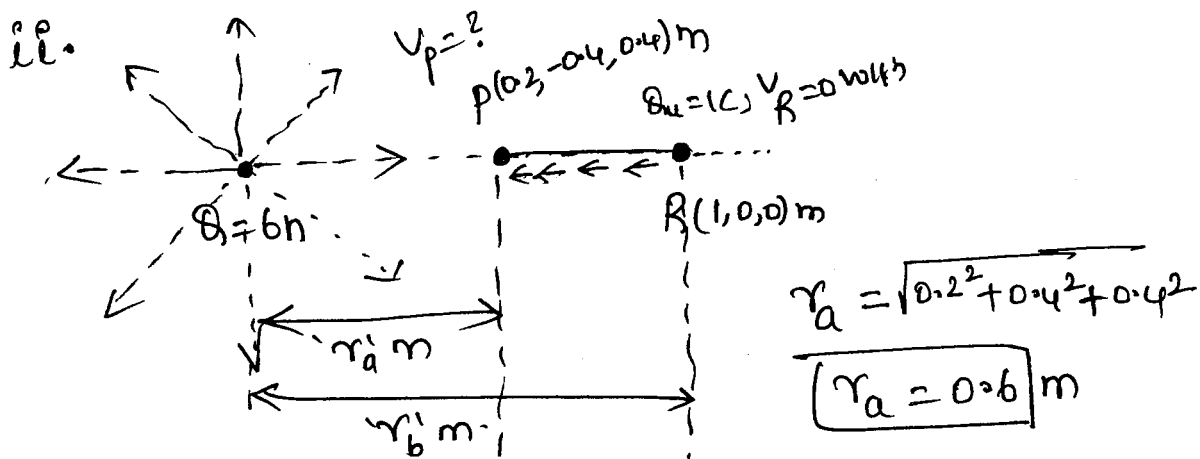 ii.
V_P = ?
P(0.2, -0.4, 0.4) m
Q_u = 1C, V_R = 0 Volts
Q = 6n
R(1, 0, 0) m
'r_a' m
'r_b' m
r_a = √0.2² + 0.4² + 0.4²
r_a = 0.6 m